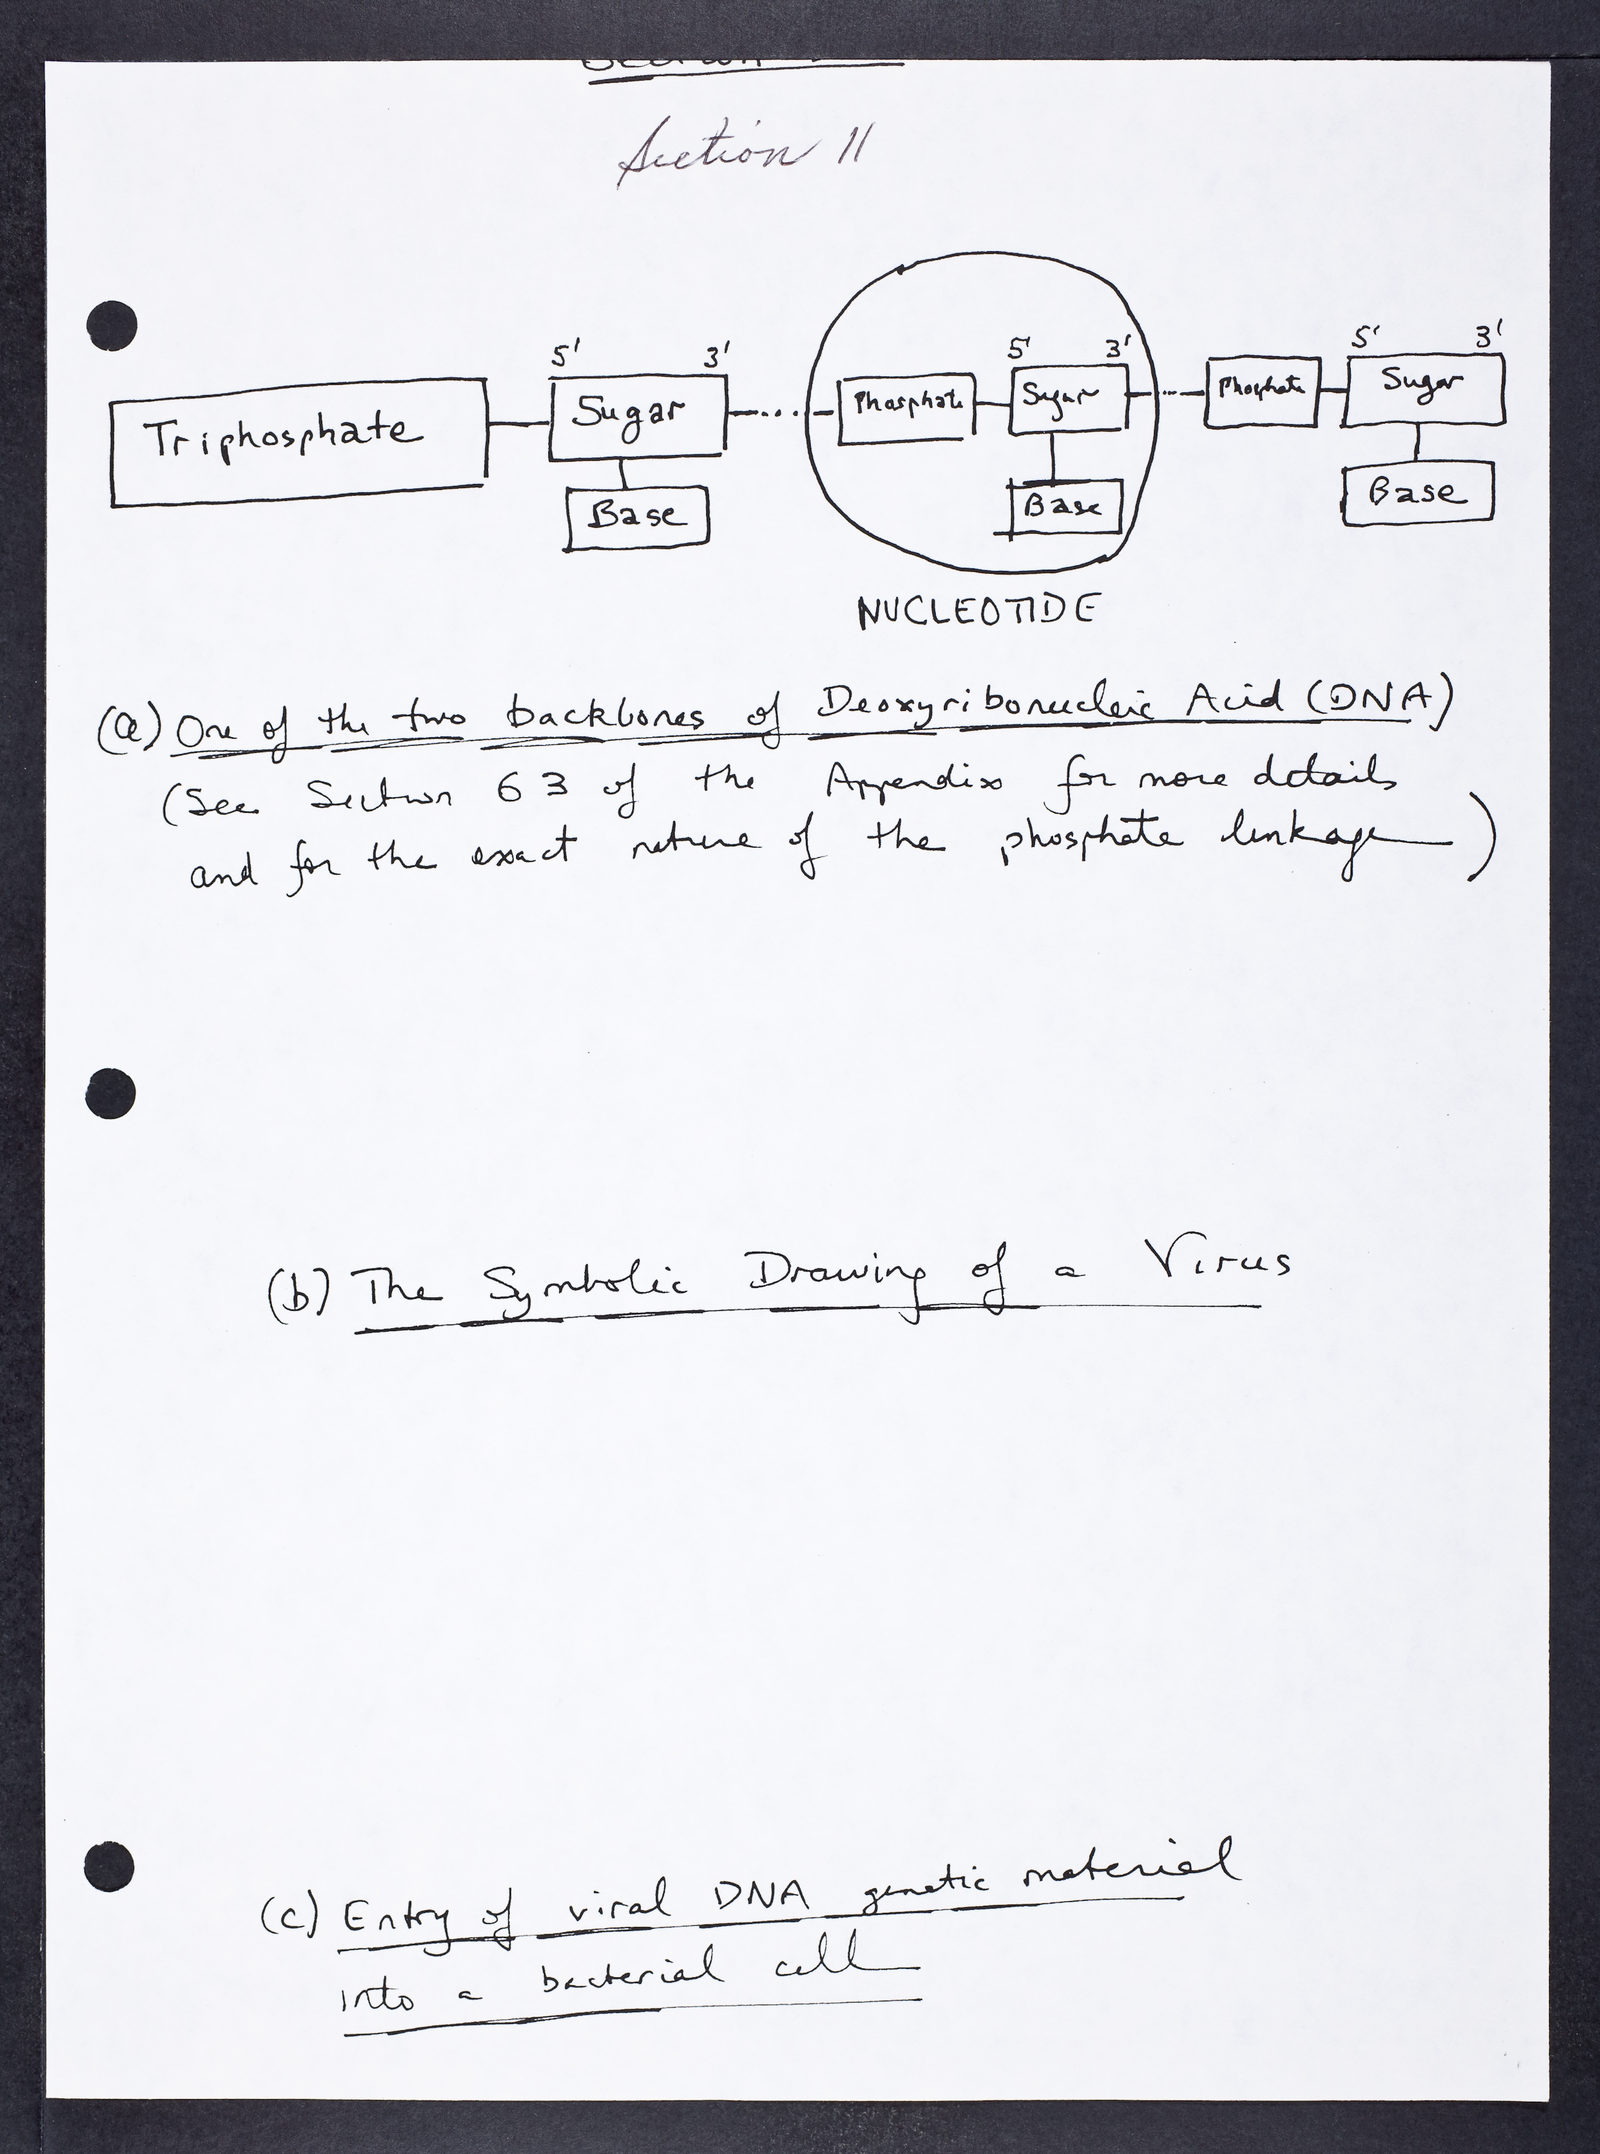 Section 11
5' 3' 5' 3' 5' 3'
Triphosphate Sugar Phosphate Sugar Phosphate Sugar
Base Base Base
NUCLEOTIDE
(a) One of the two backbones of Deoxyribonucleic Acid (DNA)
(See Section 63 of the Appendix for more details
and for the exact nature of the phosphate linkage)
(b) The Symbolic Drawing of a Virus
(c) Entry of viral DNA genetic material
into a bacterial cell